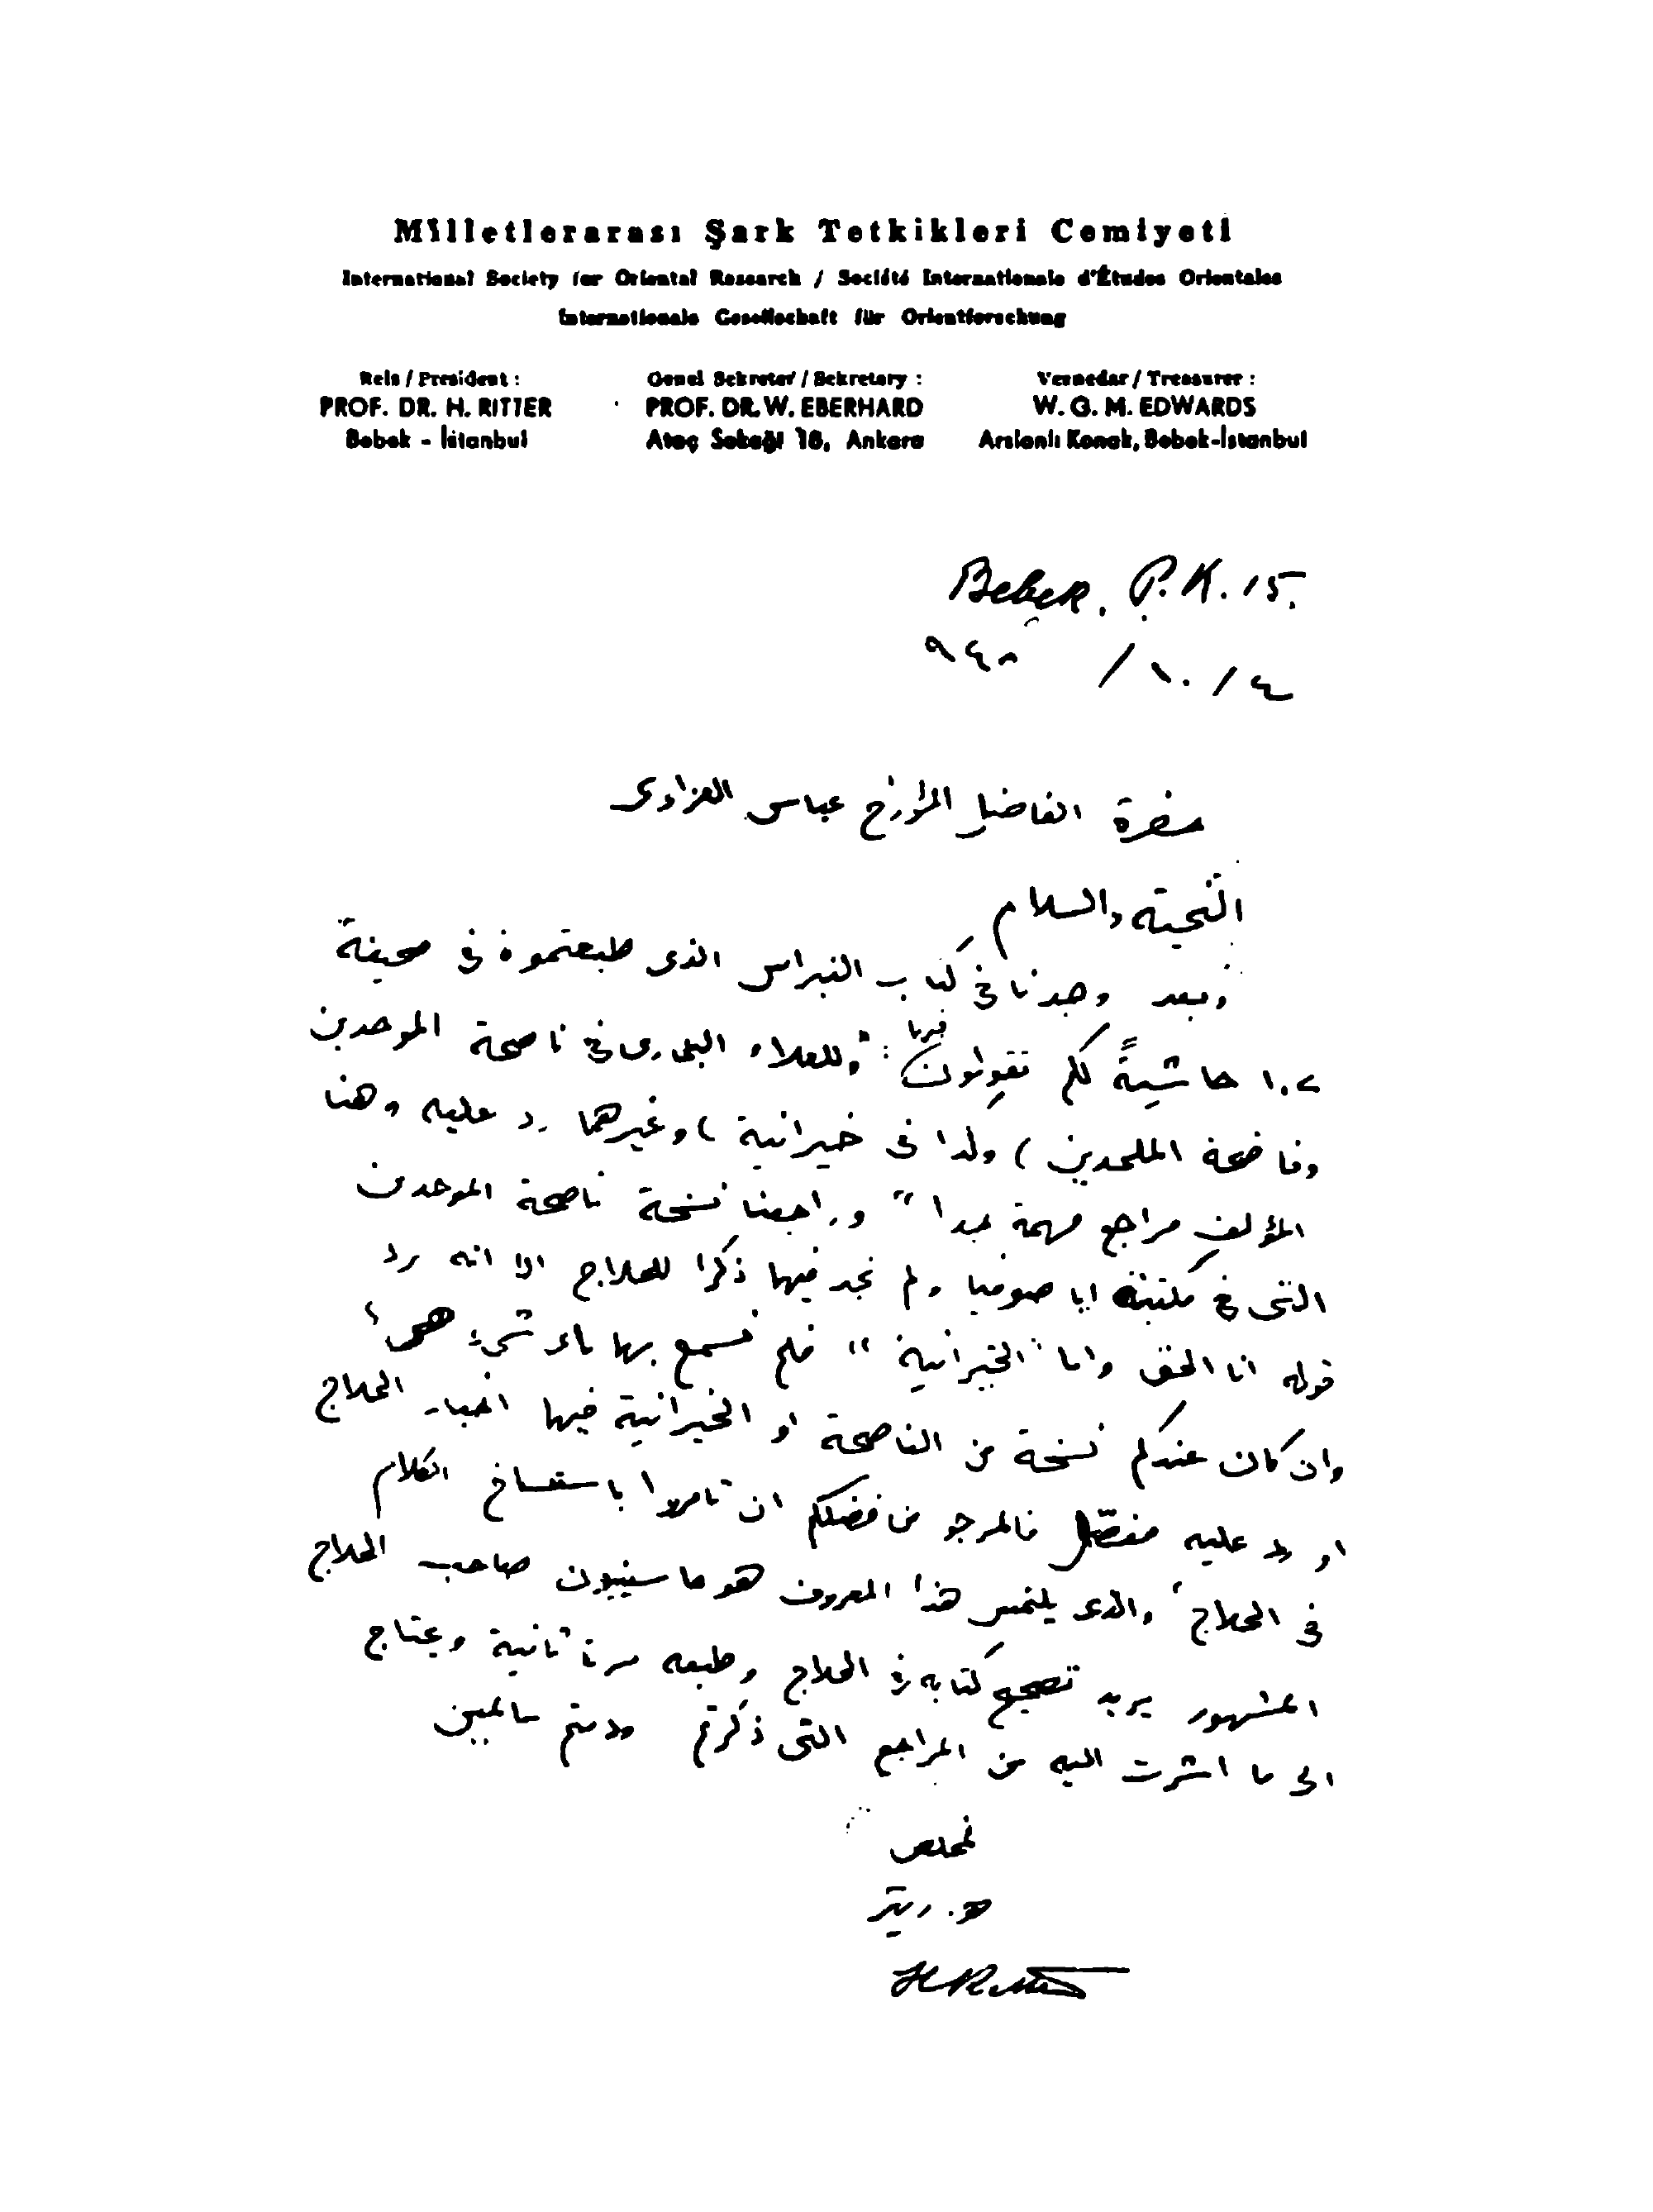 Milletlerarası Şark Tetkikleri Cemiyeti
International Society for Oriental Research / Société Internationale d'Études Orientales
Internationale Gesellschaft für Orientforschung
Reis / President :
PROF. DR. H. RITTER
Bebek - İstanbul
Genel Sekreter / Sekretary :
PROF. DR. W. EBERHARD
Ataç Sokağı 18, Ankara
Veznedar / Treasurer :
W. G. M. EDWARDS
Arslanlı Konak, Bebek-İstanbul
Bebek. P.K. 15.
٤ / ١٠ / ٩٤٨
حضرة الفاضل المؤرخ عباس العزاوى
التحية والسلام
وبعد وجدنا فى كتاب النبراس الذى طبعتموه فى صحيفة
١٠٢ حاشيةً لكم تقولون فيها : "وللعلاء البخارى فى ناصحة الموحدين
وفاضحة الملحدين ) ولذا فى خيرانية ) وغيرهما رد عليه وهنا
المؤلف مراجع مهمة جدا " وراجعنا نسخة ناصحة الموحدين
التى فى مكتبة ايا صوفيا ولم نجد فيها ذكرا للحلاج الا انه رد
قوله انا الحق واما "الخيرانية " فلم نسمع بها باى شىء هى ؟
وان كان عندكم نسخة من الناصحة او الخيرانية فيها اخبار الحلاج
او رد عليه مفصّل فالمرجو من فضلكم ان تامروا باستنساخ الكلام
فى الحلاج ، والذى يلتمس هذا المعروف هو ماسينيون صاحب الحلاج
المشهور يريد تصحيح كتابه فى الحلاج وطبعه مرة ثانية ويحتاج
الى ما اشرت اليه من المراجع التى ذكرتم ودمتم سالمين
مخلص
هـ. ريتر
H Ritter